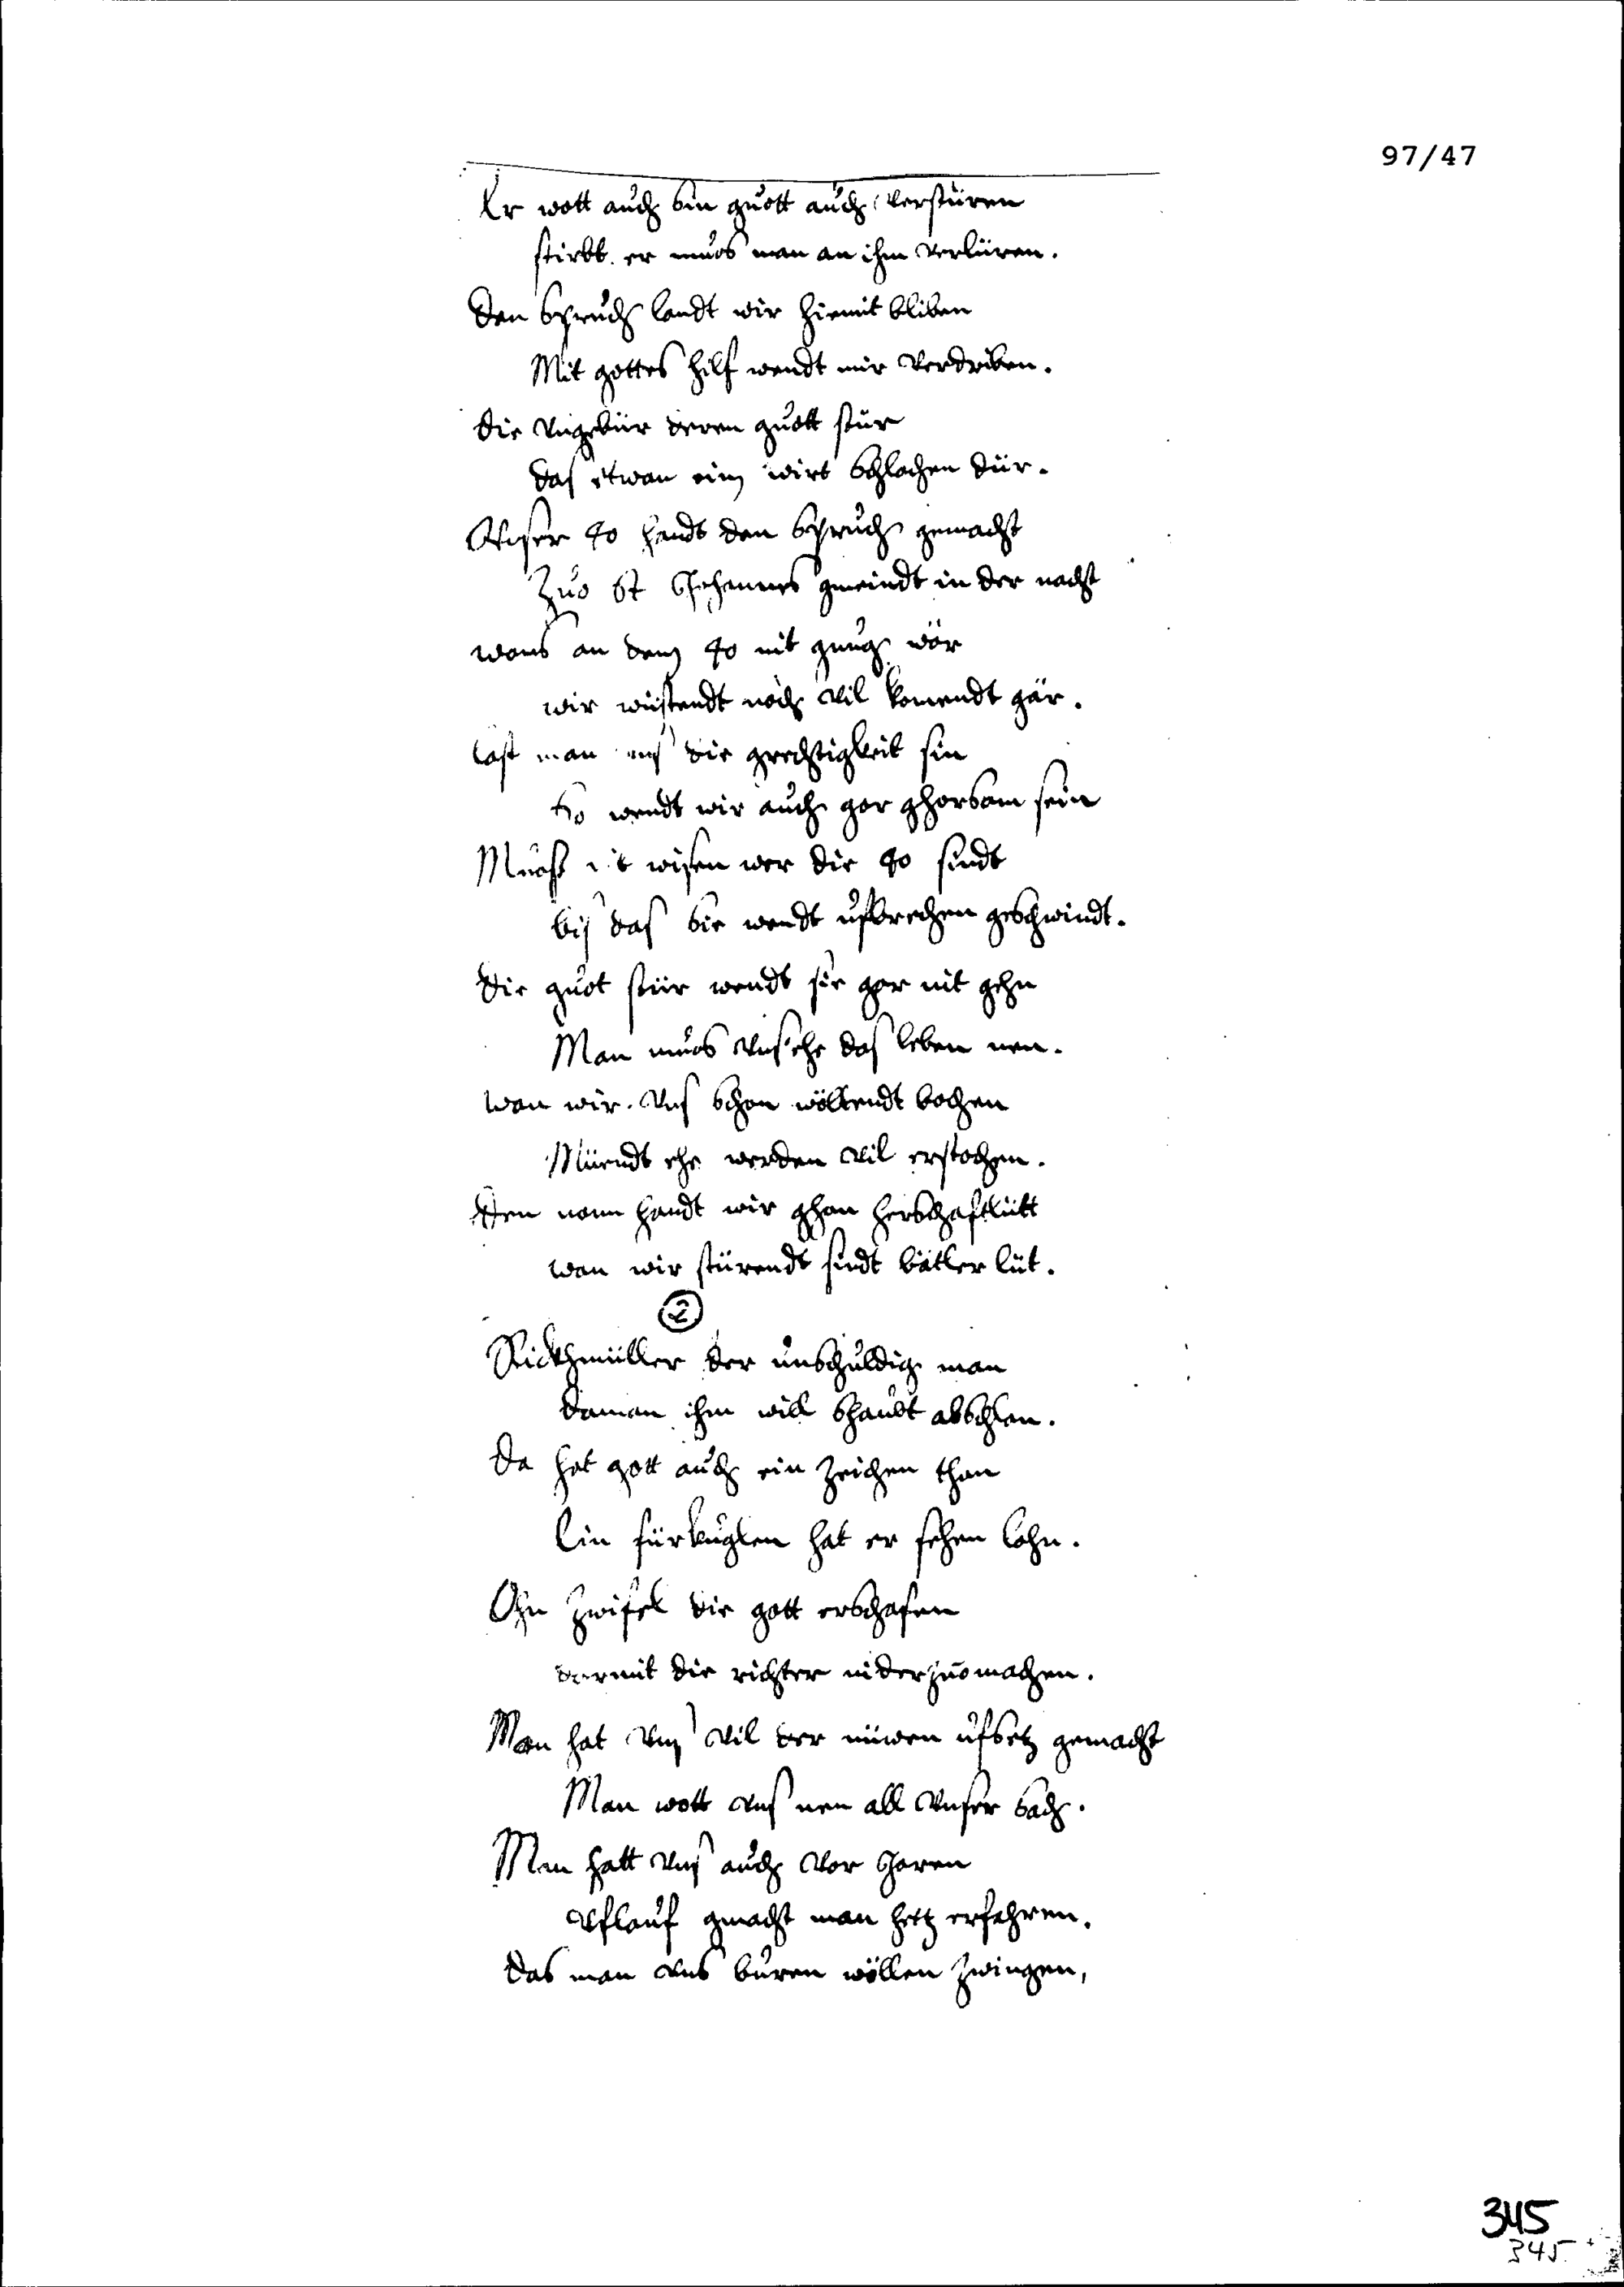 97/47
Er wott auch sin guott auch verstüren
stirbt er muos man an ihm verlüren.
Den Spruch landt wir hiemit bliben
Mit gottes hilf wendt mir verdriben.
Die Ungebür deren guott stür
das etwan eim wirt schlachen dür.
Unser 40 handt den Spruch gemacht
Zuo St Johannes gmeindt in der nacht
wans an dem 40 nit gnug wör
wir wüstendt noch vil komendt gär.
last man uns die grechtigkeit sin
So wendt wir auch gar ghorsam sein
wisen wer die 40 sindt
bis das sie wendt ufbrechen geschwindt.
Die guot stür wendt sie gar nit gehn
Man muos uns ehe das leben nen.
wan wir uns schon wöllendt bochen
Müendt ehe werden vil erstochen.
Den nam handt wir ghan herschaftlütt
wan wir stürendt sindt bätler lüt.
2
Rickhmüller der unschuldig man
daman ihm will shaubt abschlan.
Da hat gott auch ein zeichen than
Ein fürkuglen hat er sehen lohn.
Ohn Zwifel die gott erschafen
darmit die richter niderzuomachen.
Man hat uns vil der nüwen ufsetz gemacht
Man wott uns nen all unser sach.
Man hatt uns auch vor Jaren
Uflauf gmacht man hetz erfahren.
Das man uns buren wöllen zwingen,
345
345